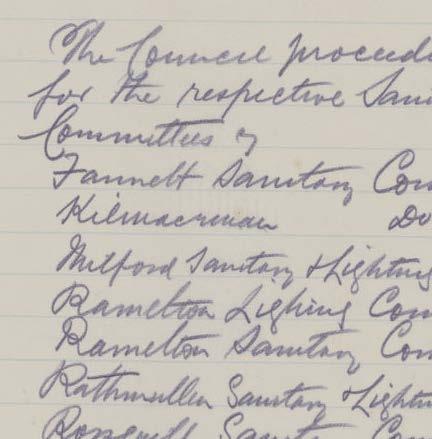 The Council proceed
for the respective Sani
Committees of
Fannett Sanitary Com
Kilmacrenan Do
Milford Sanitary & Lighting
Ramelton Lighing Com
Ramelton Sanitary Com
Rathmullen Sanitary & Lightn
Rosguill Sanit Com